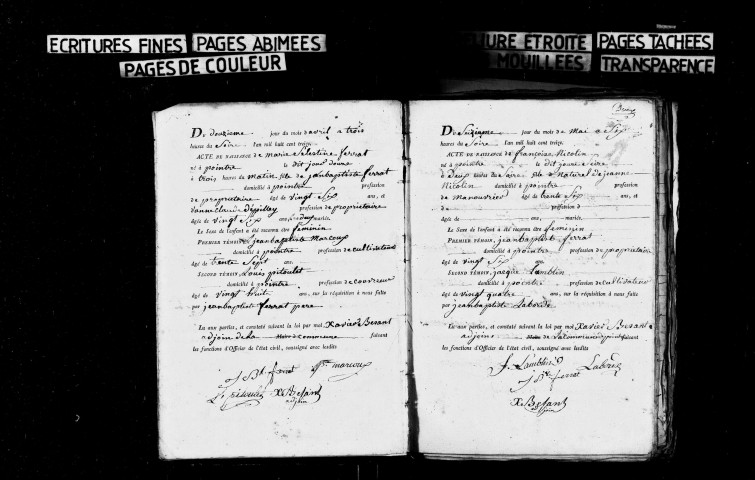 ECRITURES FINES
PAGES ABIMEES
PAGES DE COULEUR
URE ETROITE
PAGES TACHEES
MOUILLEES
TRANSPARENCE
Du douzieme jour du mois d'avril a trois
heures du Soire l'an mil huit cent treize.
ACTE DE NAISSANCE de marie Celestine ferrat
né à pointre le dit jour douze
à trois heures du matin fille de jeanbaptiste ferrat
domicilié à pointre profession
de proprietaire âgé de vingt Six ans, et
profession de proprietaire
âgée de vingt Six ans, mariés.
Le Sexe de l'enfant a été reconnu être feminin
PREMIER TÉMOIN jeanbaptiste Marcoux
domicilié à pointre profession de cultivateur
âgé de trente Sept ans.
SECOND TÉMOIN Louis pitoulet
domicilié à pointre profession de
âgé de vingt huit ans, sur la réquisition à nous faite
par jeanbaptiste ferrat pere
Lu aux parties, et constaté suivant la loi par moi Xavier Besant
adjoin de la Maire commune faisant
les fonctions d'Officier de l'état civil, soussigné avec lesdits
J Bt ferrat
marcoux
L pitoulet
X Besant
adjoin
Du Seizieme jour du mois de Mai a Six
heures du Soire l'an mil huit cent treize.
ACTE DE NAISSANCE de françoise Nicolin
né à pointre le dit jour Seize
à Deux heures du soire fille Naturel de jeanne
Nicolin domicilié à pointre profession
de Manouvriere âgé de trente Six ans, et
de profession d
âgée de ans, mariés.
Le Sexe de l'enfant a été reconnu être feminin
PREMIER TÉMOIN, jeanbaptiste ferrat
domicilié à pointre profession de proprietaire
âgé de vingt Six ans.
SECOND TÉMOIN jacque Lamblin
domicilié à pointre profession de cultivateur
âgé de vingt quatre ans, sur la réquisition à nous faite
par jeanbaptiste
Lu aux parties, et constaté suivant la loi par moi Xavier Besant
adjoins Maire de la commune faisant
les fonctions d'Officier de l'état civil, soussigné avec lesdits
J. Lamblin
J Bt ferrat
X Besant
adjoin